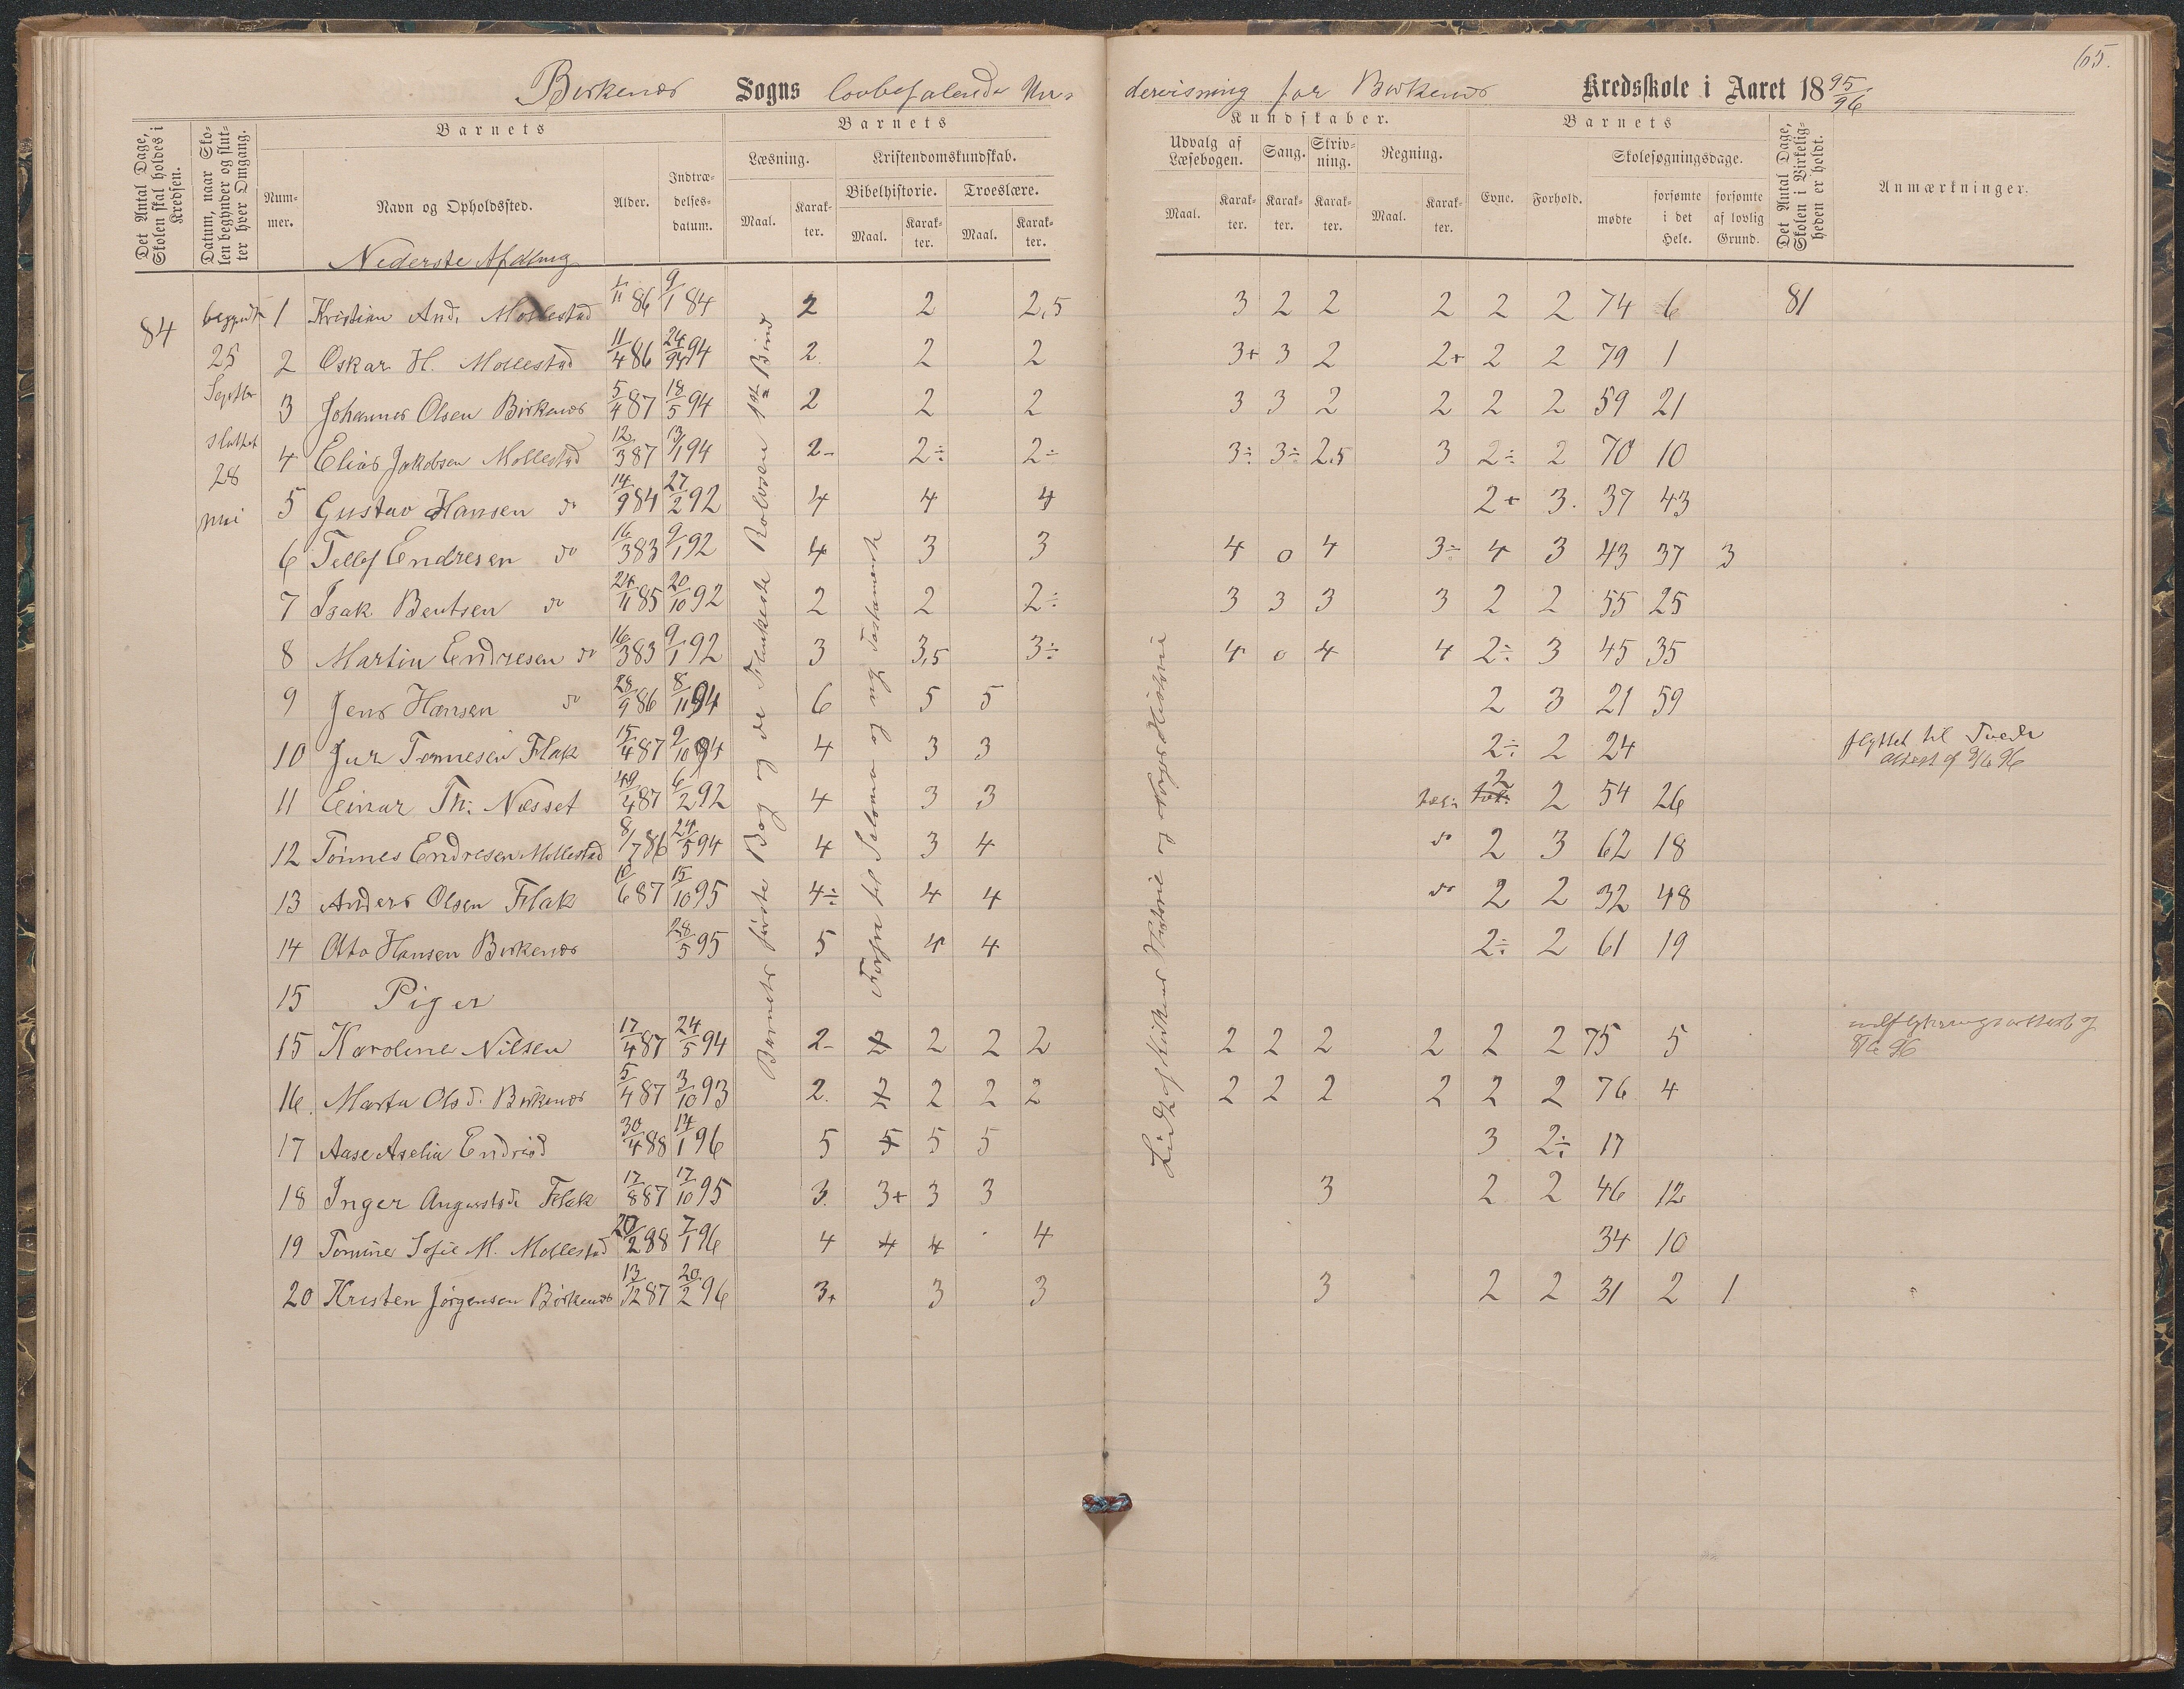 65.
Birkenæs Sogns lovbefalende Un-
dervisning for Birkenæs Kredsskole i Aaret 1895/96
Det Antal Dage, Skolen skal holdes i Kredsen.
Datum, naar Skolen begynder og slutter hver Omgang.
Barnets
Nummer.
Navn og Opholdssted.
Alder.
Indtrædelsesdatum.
Barnets
Læsning.
Maal.
Karakter.
Kristendomskundskab.
Bibelhistorie.
Maal.
Karakter.
Troeslære.
Maal.
Karakter.
Kundskaber.
Udvalg af Læsebogen.
Maal.
Karakter.
Sang.
Karakter.
Skrivning.
Karakter.
Regning.
Maal.
Karakter.
Barnets
Evne.
Forhold.
Skolesøgningsdage.
mødte
forsømte i det Hele.
forsømte af lovlig Grund.
Det Antal Dage, Skolen i Virkeligheden er holdt.
Anmærkninger.
Nederste Afdling
84
begyndt
25
Septbr
sluttet
28
mai
Barnets første Bog og de Flinkeste Rolvsen 1ste Bind
Forfra til Salomo og nyt Testamente
1 Kristian And. Mollestad 1/11 86 9/1 84 2 2 2,5 3 2 2 2 2 2 74 6 81
2 Oskar H. Mollestad 11/4 86 24/94 94 2. 2 2 3+ 3 2 2+ 2 2 79 1
3 Johannes Olsen Birkenæs 5/4 87 18/5 94 2 2 2 3 3 2 2 2 2 59 21
4 Elias Jakobsen Mollestad 12/3 87 13/1 94 2- 2÷ 2÷ 3÷ 3÷ 2,5 3 2÷ 2 70 10
5 Gustav Hansen do 14/9 84 27/2 92 4 4 4 2+ 3. 37 43
6 Tellef Endresen do 16/3 83 9/1 92 4 3 3 4 0 4 3÷ 4 3 43 37 3
7 Isak Bentsen do 24/11 85 20/10 92 2 2 2÷ 3 3 3 3 2 2 55 25
8 Martin Endresen do 16/3 83 9/1 92 3 3,5 3÷ 4 0 4 4 2÷ 3 45 35
9 Jens Hansen do 28/9 86 8/11 94 6 5 5 2 3 21 59
10 Jur Tønnesen Flak 15/4 87 9/10 94 4 3 3 2÷ 2 24 flyttet til Tvede attest af 9/6 96
11 Einar Th. Næsset 19/4 87 6/2 92 4 3 3 2 2 54 26
12 Tönnes Endresen Mollestad 8/7 86 24/5 94 4 3 4 do 2 3 62 18
13 Anders Olsen Flak 10/6 87 15/10 95 4÷ 4 4 do 2 2 32 48
14 Otto Hansen Birkenæs 28/5 95 5 4 4 2÷ 2 61 19
15 Piger
15 Karoline Nilsen 17/4 87 24/5 94 2- 2 2 2 2 2 2 2 2 2 2 75 5 udflytningsattest af 8/6 96
16. Marta Olsd. Birkenæs 5/4 87 3/10 93 2. 2 2 2 2 2 2 2 2 2 2 76 4
17 Aase Aselia Endrisd 30/4 88 14/1 96 5 5 5 5 3 2÷ 17
18 Inger Augustsd. Flak 17/8 87 17/10 95 3. 3+ 3 3 3 2 2 46 12
19 Tomine Sofie M. Mollestad 20/2 88 7/1 96 4 4 4 4 34 10
20 Kristen Jørgensen Birkenæs 13/12 87 20/2 96 3+ 3 3 3 2 2 31 2 1